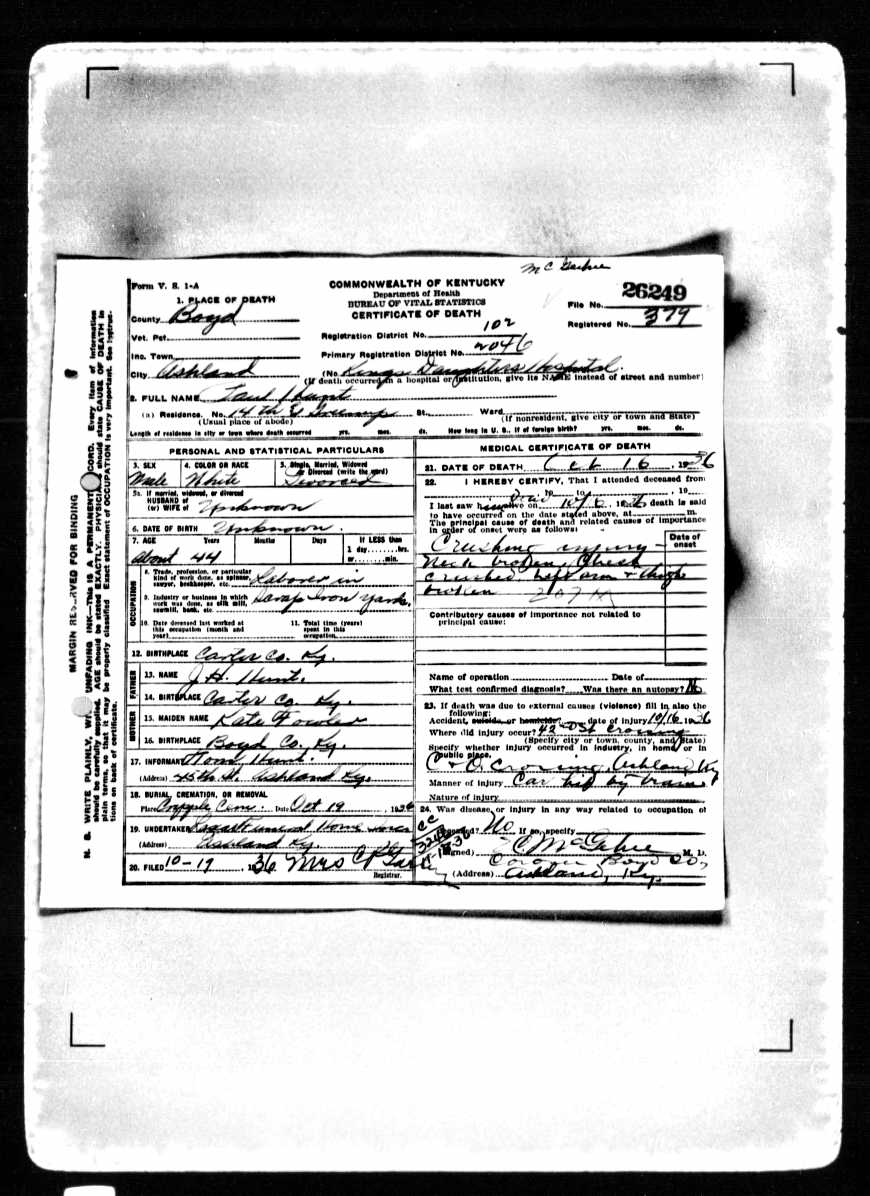 Mc
Form V. S. 1-A
COMMONWEALTH OF KENTUCKY
Department of Health
BUREAU OF VITAL STATISTICS
CERTIFICATE OF DEATH
File No. 26249
Registered No. 379
1. PLACE OF DEATH
County Boyd
Vot. Pct.
Inc. Town
City Ashland
Registration District No. 102
Primary Registration District No. 2046
(No. Kings Daughters Hospital.
(If death occurred in a hospital or institution, give its NAME instead of street and number)
2. FULL NAME Paul Hunt
(a) Residence. No. 14th St St. Ward
(Usual place of abode)
(If nonresident, give city or town and State)
Length of residence in city or town where death occurred yrs. mos. ds. How long in U. S., if of foreign birth? yrs. mos. ds.
PERSONAL AND STATISTICAL PARTICULARS
3. SEX
Male
4. COLOR OR RACE
White
5. Single, Married, Widowed
or Divorced (write the word)
Divorced
5a. If married, widowed, or divorced
HUSBAND of
(or) WIFE of Unknown
6. DATE OF BIRTH Unknown.
7. AGE Years Months Days If LESS than
1 day........hrs.
or........min.
About 44
OCCUPATION
8. Trade, profession, or particular
kind of work done, as spinner,
sawyer, bookkeeper, etc. Laborer in
9. Industry or business in which
work was done, as silk mill,
sawmill, bank, etc. Scrap Iron Yards.
10. Date deceased last worked at
this occupation (month and
year)
11. Total time (years)
spent in this
occupation
12. BIRTHPLACE Carter Co. Ky.
FATHER
13. NAME J. H. Hunt.
14. BIRTHPLACE Carter Co. Ky.
MOTHER
15. MAIDEN NAME Kate Fowler
16. BIRTHPLACE Boyd Co. Ky.
17. INFORMANT Tom Hunt.
(Address) 45th St. Ashland Ky.
18. BURIAL, CREMATION, OR REMOVAL
Place Cem. Date Oct 19, 1936
19. UNDERTAKER Funeral Home
(Address) Ashland Ky.
20. FILED 10-19, 1936 Mrs C
Registrar.
MEDICAL CERTIFICATE OF DEATH
21. DATE OF DEATH Oct 16, 1936
22. I HEREBY CERTIFY, That I attended deceased from
, 19 to , 19
I last saw h alive on 10/16, 1936 death is said
to have occurred on the date stated above, at m.
The principal cause of death and related causes of importance
in order of onset were as follows:
Date of
onset
Crushing injury -
Neck broken, Chest
crushed Left arm & thigh
broken
Contributory causes of importance not related to
principal cause:
Name of operation Date of
What test confirmed diagnosis? Was there an autopsy? No
23. If death was due to external causes (violence) fill in also the
following:
Accident, suicide, or homicide, date of injury 10/16 1936
Where did injury occur? 42-St Crossing
(Specify city or town, county, and State)
Specify whether injury occurred in industry, in home, or in
public place.
C & O. Crossing, Ashland Ky
Manner of injury Car hit by train
Nature of injury
24. Was disease, or injury in any way related to occupation of
deceased? No If so, specify
(Signed) M. D.
Coroner Boyd Co,
(Address) Ashland, Ky.
MARGIN RESERVED FOR BINDING
N. B. WRITE PLAINLY, WITH UNFADING INK—This IS A PERMANENT RECORD. Every item of information
should be carefully supplied. AGE should be stated EXACTLY. PHYSICIANS should state CAUSE OF DEATH in
plain terms, so that it may be properly classified. Exact statement of OCCUPATION is very important. See instruc-
tions on back of certificate.